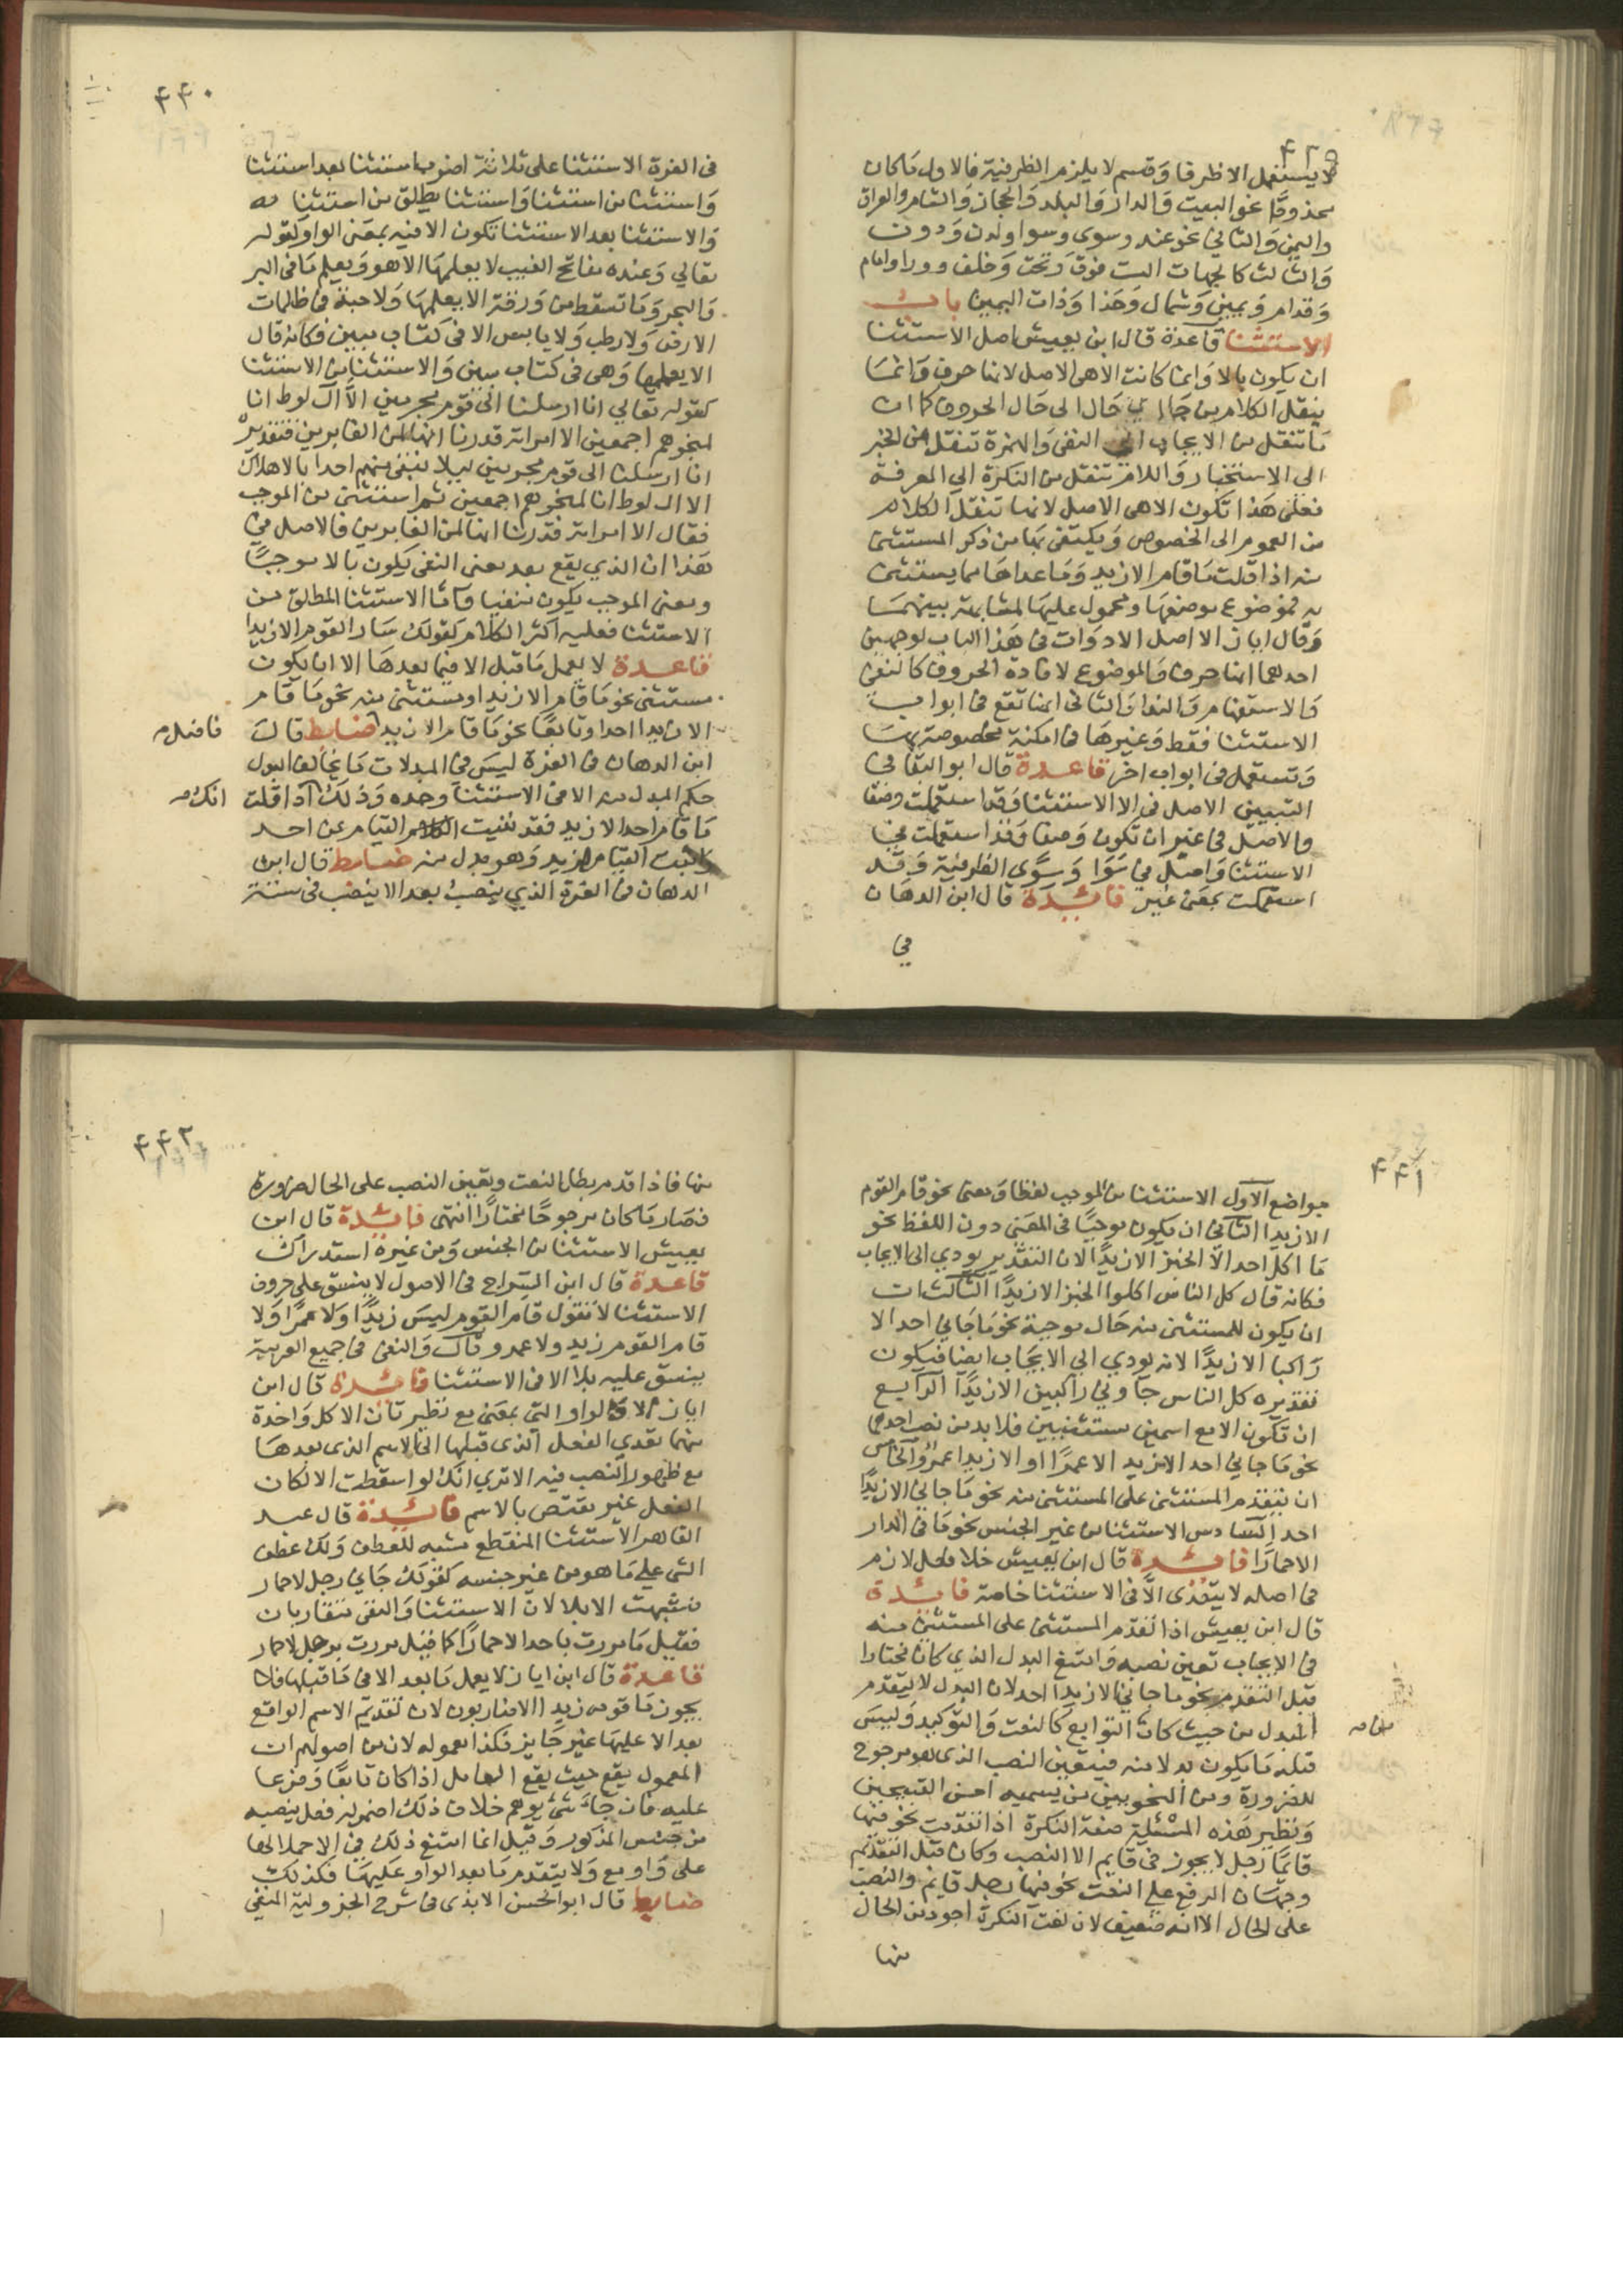 ٤٣٩
لا يستعمل الا ظرفا وقسم لا يلزم الظرفية فالاول ما كان
محذوفا نحو البيت والدار والبلد والحجاز والشام والعراق
واليمن والثاني نحو عند وسوى وسوا ولدن ودون
والثالث كالجهات الست فوق وتحت وخلف وورا وامام
وقدام ويمين وشمال وحذا وذات اليمين باب
الاستثنا قاعدة قال ابن يعيش اصل الاستثنا
ان يكون بالا وانما كانت الا هي الاصل لانها حرف وانما
ينقل الكلام من حال الى حال الحروف كما ان
ما تنقل من الايجاب الى النفي والهمزة تنقل من الخبر
الى الاستخبار واللام تنقل من النكرة الى المعرفة
فعلى هذا تكون الا هي الاصل لانها تنقل الكلام
من العموم الى الخصوص ويكتفى بها من ذكر المستثنى
منه اذا قلت ما قام الا زيد وما عداها مما يستثنى
به فموضوع موضعها ومحمول عليها لمشابهة بينهما
وقال ابن اياز الا اصل الادوات في هذا الباب لوجهين
احدهما انها حرف والموضوع لافادة الحروف كالنفي
والاستفهام والندا والثاني انها تقع في ابواب
الاستثنا فقط وغيرها في امكنة مخصوصة بها
وتستعمل في ابواب اخر قاعدة قال ابو البقا في
التبيين الاصل في الا الاستثنا وقد استعملت وصفا
والاصل في غير ان تكون وصفا وقد استعملت في
الاستثنا واصل في سوا وسوى الظرفية وقد
استعملت بمعنى غير فائدة قال ابن الدهان
في
٤٤٠
في الغرة الاستثنا على ثلاثة اضرب استثنا بعد استثنا
واستثنا من استثنا واستثنا مطلق من استثنا
والاستثنا بعد الاستثنا تكون الا فيه بمعنى الواو كقوله
تعالى وعنده مفاتح الغيب لا يعلمها الا هو ويعلم ما في البر
والبحر وما تسقط من ورقة الا يعلمها ولا حبة في ظلمات
الارض ولا رطب ولا يابس الا في كتاب مبين فكانه قال
الا يعلمها وهي في كتاب مبين والاستثنا من الاستثنا
كقوله تعالى انا ارسلنا الى قوم مجرمين الا آل لوط انا
لمنجوهم اجمعين الا امراته قدرنا انها لمن الغابرين فتقديره
انا ارسلنا الى قوم مجرمين ليلا ننفي منهم احدا بالاهلاك
الا ال لوط انا لمنجوهم اجمعين ثم استثنى من الموجب
فقال الا امراته قدرنا انها لمن الغابرين فالاصل في
هذا ان الذي يقع بعد معنى النفي يكون بالا موجبا
وبعد معنى الموجب يكون منفيا واما الاستثنا المطلق من
الاستثنا فعليه اكثر الكلام كقولك سار القوم الا زيدا
قاعدة لا يعمل ما قبل الا فيما بعدها الا ان يكون
مستثنى نحو ما قام الا زيد او مستثنى منه نحو ما قام
الا زيدا احد او تابعا نحو ما قام الا زيد فاضل ضابط قال
ابن الدهان في الغرة ليس في المبدلات ما يخالف البدل
حكم المبدل منه الا في الاستثنا وحده وذلك انك اذا قلت
ما قام احد الا زيد فقد نفيت القيام عن احد
واثبت القيام لزيد وهو بدل منه ضابط قال ابن
الدهان في الغرة الذي ينصب بعد الا ينصب في ستة
٤٤١
مواضع الاول الاستثنا من الموجب لفظا ومعنى نحو قام القوم
الا زيدا الثاني ان يكون موجبا في المعنى دون اللفظ نحو
ما اكل احد الا الخبز الا زيدا لان التقدير يودي الى الايجاب
فكانه قال كل الناس اكلوا الخبز الا زيدا الثالث ان
ان يكون للمستثنى منه حال موجبة نحو ما جاني احد الا
راكبا الا زيدا لانه يودي الى الايجاب ايضا فيكون
تقديره كل الناس جاوني راكبين الا زيدا الرابع
ان تكون الا مع اسمين مستثنيين فلا بد من نصب احدهما
نحو ما جاني احد الا زيد الا عمرا او الا زيدا عمرو الخامس
ان يتقدم المستثنى على المستثنى منه نحو ما جاني الا زيدا
احد السادس الاستثنا من غير الجنس نحو ما في الدار
الا حمارا فائدة قال ابن يعيش خلا فعل لازم
في اصله لا يتعدى الا في الاستثنا خاصة فائدة
قال ابن يعيش اذا تقدم المستثنى على المستثنى منه
في الايجاب تعين نصبه وامتنع البدل الذي كان مختارا
قبل التقدم نحو ما جاني الا زيدا احد لان البدل لا يتقدم
المبدل من حيث كان من التوابع كالنعت والتوكيد وليس
قبله ما يكون بدلا منه فيتعين النصب الذي هو مرجوح
للضرورة ومن النحويين من يسميه احسن القبيحين
ونظير هذه المسئلة صفة النكرة اذا تقدمت نحو فيها
قائما رجل لا يجوز في قايم الا النصب وكان قبل التقدم
وجهان الرفع على النعت نحو فيها رجل قايم والنصب
على الحال الا انه ضعيف لان نعت النكرة اجود من الحال
منها
٤٤٢
منها فاذا قدم بطل النعت وتعين النصب على الحال ضرورة
فصار ما كان مرجوحا مختارا انتهى فائدة قال ابن
يعيش الاستثنا من الجنس ومن غيره استدراك
قاعدة قال ابن السراج في الاصول لا ينسق على حروف
الاستثنا لا تقول قام القوم ليس زيدا ولا عمرا ولا
قام القوم زيد ولا عمرو قال والنفي في جميع العربية
ينسق عليه بلا الا في الاستثنا فائدة قال ابن
اياز الا والواو التي بمعنى مع نظيرتان لان كل واحدة
منهما تعدي الفعل الذي قبلها الى الاسم الذي بعدها
مع ظهور النصب فيه الا ترى انك لو اسقطت الا لكان
الفعل غير مقتض بالاسم فائدة قال عبد
القاهر الاستثنا المنقطع مشبه للعطف ولك عطف
الشي على ما هو من غير جنسه كقولك جاني رجل لا حمار
فشبهت الا بلا لان الاستثنا والنفي متقاربان
فقيل ما مررت باحد الا حمارا كما قيل مررت برجل لا حمار
قاعدة قال ابن اياز لا يعمل ما بعد الا في ما قبلها فلا
يجوز ما قومه زيد الا ضاربون لان تقديم الاسم الواقع
بعد الا عليها غير جايز فكذا معموله لان من اصولهم ان
المعمول يقع حيث يقع العامل اذا كان تابعا وفرعا
عليه فان جاء شئ يوهم خلاف ذلك اضمر له فعل ينصبه
من جنس المذكور وقيل انما امتنع ذلك في الا حملا لها
على واو مع ولا يتقدم ما بعد الواو عليها فكذلك
ضابط قال ابو الحسن الابذي في شرح الجزولية المنفي